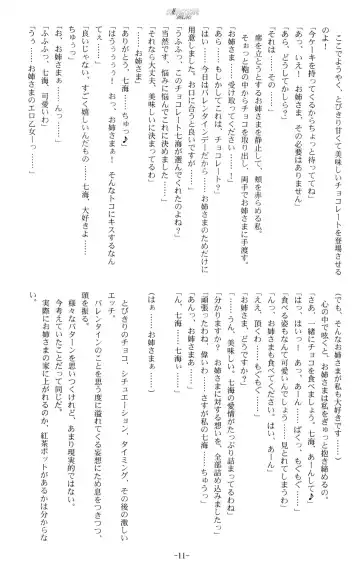 ここでようやく、とびきり甘くて美味しいチョコレートを登場させる
のよ！
「今ケーキを持ってくるからちょっと待っててね」
「あら、い、いえ！　お姉さま、その必要はありません」
「あら、どうしてかしら？」
「それは、その……」
　席を立とうとするお姉さまを静止して、頬を赤らめる私。
　そっと鞄の中からチョコを取り出し、両手でお姉さまに手渡す。
「お姉さま……受け取ってください……！」
「あら、もしかしてこれは、チョコレート？」
「はい……今日はバレンタインデーだから……お姉さまのためだけに
用意しました。お口に合うと良いですが……」
「うふふっ、このチョコレート七海が選んでくれたのよね？」
「当然です、悩みに悩んでこれに決めました」
「それなら大丈夫、美味しいに決まってるわ」
「……お姉さま」
「ありがとう七海、ちゅっ♪」
「はうぅぅぅぅ！　おっ、お姉さまぁ！　そんなトコにキスするなん
て……」
「良いじゃない。すごく嬉しいんだもの……七海、大好きよ……
ちゅうっ」
「お、お姉さまぁ……んっ……」
「ふふふっ、七海、可愛いわ」
「うぅ……お姉さまのエロ乙女ーっ」
「でも、そんなお姉さまが私も大好きです……！」
　心の中で呟くと、お姉さまは私をぎゅっと抱き締めるの。
「さあ、一緒にチョコを食べましょう。七海、あーんして♪」
「はっ、はいっ……あっ、あーん……ぱくっ、もぐもぐ……」
「食べる姿もなんて可愛いんでしょう……見とれてしまうわ」
「お姉さまも食べてください。はい、あーん」
「ええ、頂くわ……もぐもぐ……」
「お姉さま、どうですか？」
「……うん、美味しい。七海の愛情がたっぷり詰まってるわね」
「分かりますか？　お姉さまに対する想いを、全部詰め込みましたっ」
「頑張ったわね、偉いわ……さすが私の七海……ちゅうっ」
「あんっ、お姉さまぁ……」
「七海っ……」
「はぁ……お姉さまぁ……」

　とびきりのチョコ、シチュエーション、タイミング、その後の激しい
エッチ。
　バレンタインのことを思う度に溢れてくる妄想にため息をつきつつ、
頭を振る。
　様々なパターンを思いつくけれど、あまり現実的ではない。
　今考えていたことだって同じだ。
　実際にお姉さまの家に上がれるのか、紅茶ポットがあるかは分からな
い。
-11-